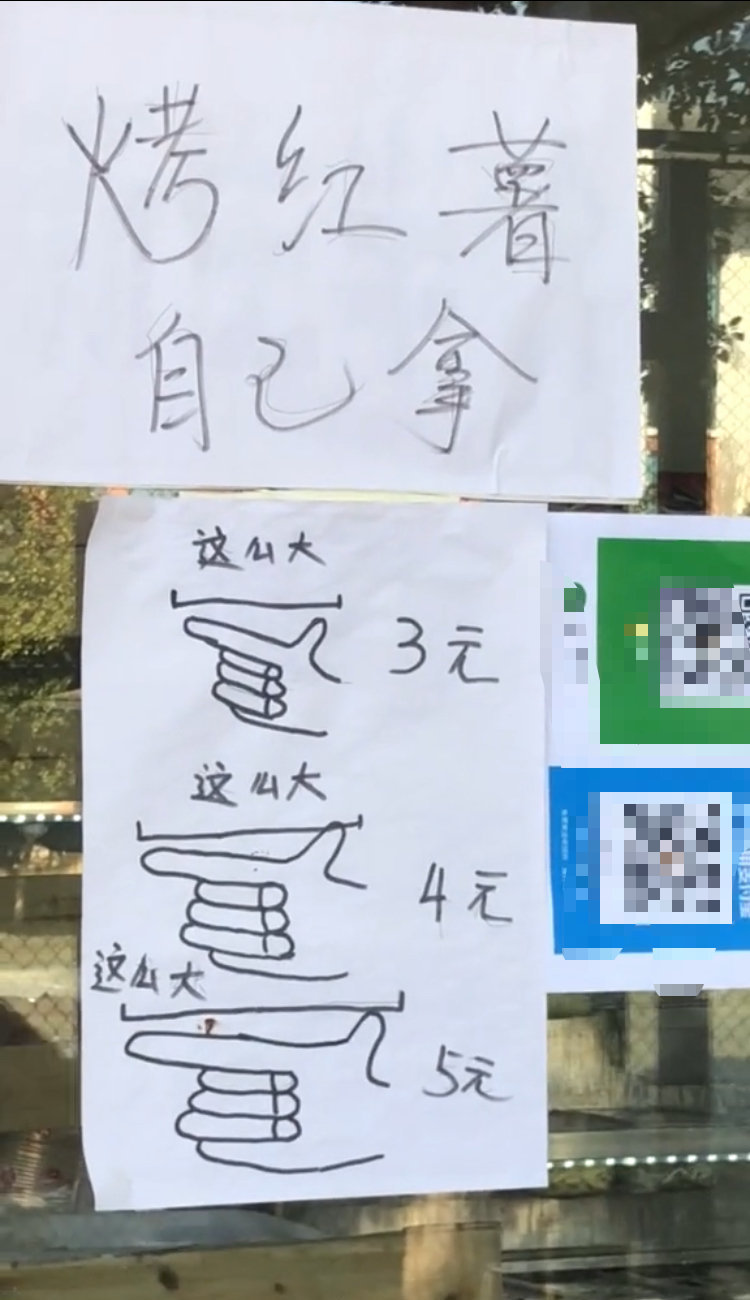 烤红薯
自己拿
这么大
3元
这么大
4元
这么大
5元